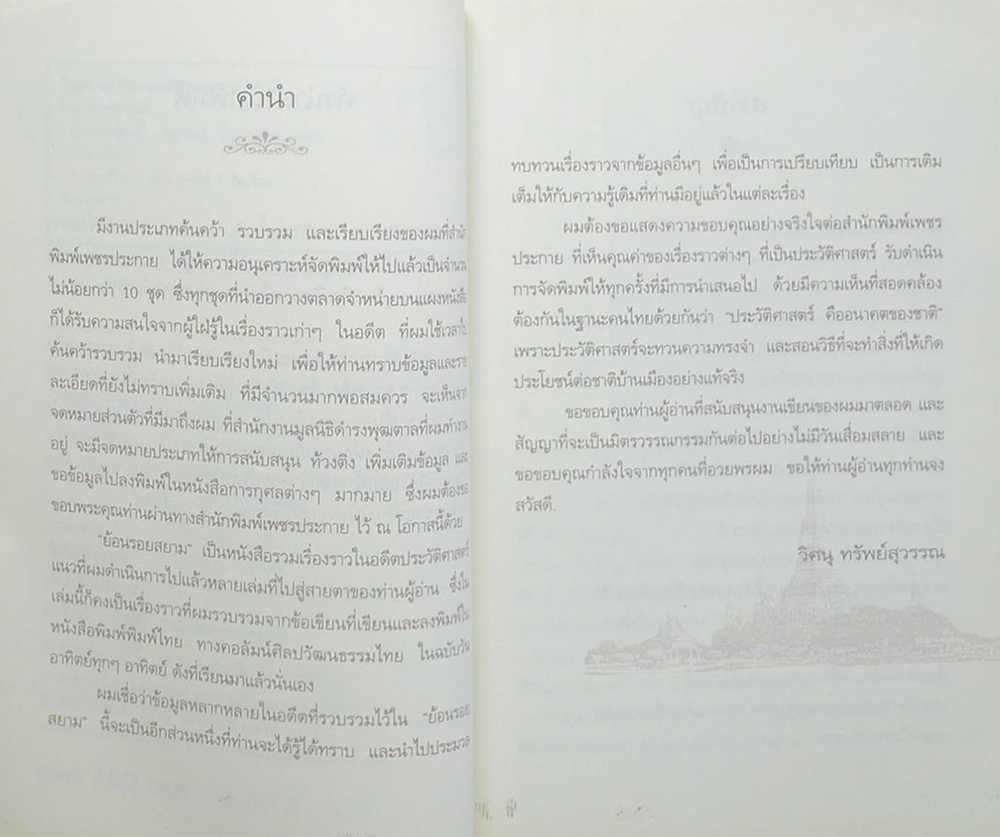 คำนำ
มีงานประเภทค้นคว้า รวบรวม และเรียบเรียงของผมที่สำนัก
พิมพ์เพชรประกาย ได้ให้ความอนุเคราะห์จัดพิมพ์ให้ไปแล้วเป็นจำนวน
ไม่น้อยกว่า 10 ชุด ซึ่งทุกชุดที่นำออกวางตลาดจำหน่ายบนแผงหนังสือ
ก็ได้รับความสนใจจากผู้ใฝ่รู้ในเรื่องราวเก่าๆ ในอดีต ที่ผมใช้เวลาไป
ค้นคว้ารวบรวม นำมาเรียบเรียงใหม่ เพื่อให้ท่านทราบข้อมูลและราย
ละเอียดที่ยังไม่ทราบเพิ่มเติม ที่มีจำนวนมากพอสมควร จะเห็นจาก
จดหมายส่วนตัวที่มีมาถึงผม ที่สำนักงานมูลนิธิดำรงพุฒตาลที่ผมทำงาน
อยู่ จะมีจดหมายประเภทให้การสนับสนุน ท้วงติง เพิ่มเติมข้อมูล และ
ขอข้อมูลไปลงพิมพ์ในหนังสือการกุศลต่างๆ มากมาย ซึ่งผมต้องขอ
ขอบพระคุณท่านผ่านทางสำนักพิมพ์เพชรประกาย ไว้ ณ โอกาสนี้ด้วย
"ย้อนรอยสยาม" เป็นหนังสือรวมเรื่องราวในอดีตประวัติศาสตร์
แนวที่ผมดำเนินการไปแล้วหลายเล่มที่ไปสู่สายตาของท่านผู้อ่าน ซึ่งใน
เล่มนี้ก็คงเป็นเรื่องราวที่ผมรวบรวมจากข้อเขียนที่เขียนและลงพิมพ์ใน
หนังสือพิมพ์พิมพ์ไทย ทางคอลัมน์ศิลปวัฒนธรรมไทย ในฉบับวัน
อาทิตย์ทุกๆ อาทิตย์ ดังที่เรียนมาแล้วนั่นเอง
ผมเชื่อว่าข้อมูลหลากหลายในอดีตที่รวบรวมไว้ใน "ย้อนรอย
สยาม" นี้จะเป็นอีกส่วนหนึ่งที่ท่านจะได้รู้ได้ทราบ และนำไปประมวล
ทบทวนเรื่องราวจากข้อมูลอื่นๆ เพื่อเป็นการเปรียบเทียบ เป็นการเติม
เต็มให้กับความรู้เดิมที่ท่านมีอยู่แล้วในแต่ละเรื่อง
ผมต้องขอแสดงความขอบคุณอย่างจริงใจต่อสำนักพิมพ์เพชร
ประกาย ที่เห็นคุณค่าของเรื่องราวต่างๆ ที่เป็นประวัติศาสตร์ รับดำเนิน
การจัดพิมพ์ให้ทุกครั้งที่มีการนำเสนอไป ด้วยมีความเห็นที่สอดคล้อง
ต้องกันในฐานะคนไทยด้วยกันว่า "ประวัติศาสตร์ คืออนาคตของชาติ"
เพราะประวัติศาสตร์จะทวนความทรงจำ และสอนวิธีที่จะทำสิ่งที่ให้เกิด
ประโยชน์ต่อชาติบ้านเมืองอย่างแท้จริง
ขอขอบคุณท่านผู้อ่านที่สนับสนุนงานเขียนของผมมาตลอด และ
สัญญาที่จะเป็นมิตรวรรณกรรมกันต่อไปอย่างไม่มีวันเสื่อมสลาย และ
ขอขอบคุณกำลังใจจากทุกคนที่อวยพรผม ขอให้ท่านผู้อ่านทุกท่านจง
สวัสดี.
วิศนุ ทรัพย์สุวรรณ